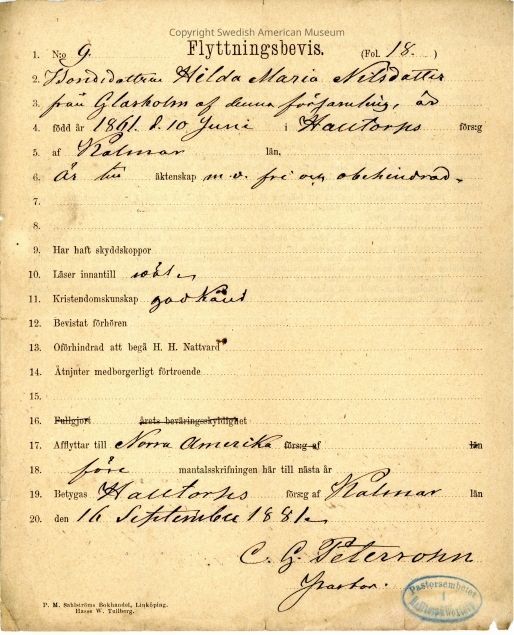 Copyright Swedish American Museum
Flyttningsbevis.
1. N:o 9. (Fol. 18.)
2. Bondedottren Hilda Maria Nelsdotter
3. från Glasholm af denna församling, är
4. född år 1861. d. 10 Juni i Halltorps förs:g
5. af Kalmar län,
6. Är till äktenskap m.v. fri och obehindrad.
7.
8.
9. Har haft skyddskoppor
10. Läser innantill väl
11. Kristendomskunskap godkänd
12. Bevistat förhören
13. Oförhindrad att begå H. H. Nattvard
14. Åtnjuter medborgerligt förtroende
15.
16. Fullgjort årets beväringsskyldighet
17. Afflyttar till Norra Amerika förs:g af län
18. före mantalsskrifningen här till nästa år
19. Betygas Halltorps förs:g af Kalmar län
20. den 16 September 1881
C. G. Petersohn
Pastor.
Pastorsembetet
i
P. M. Sahlströms Bokhandel, Linköping.
Hasse W. Tullberg.